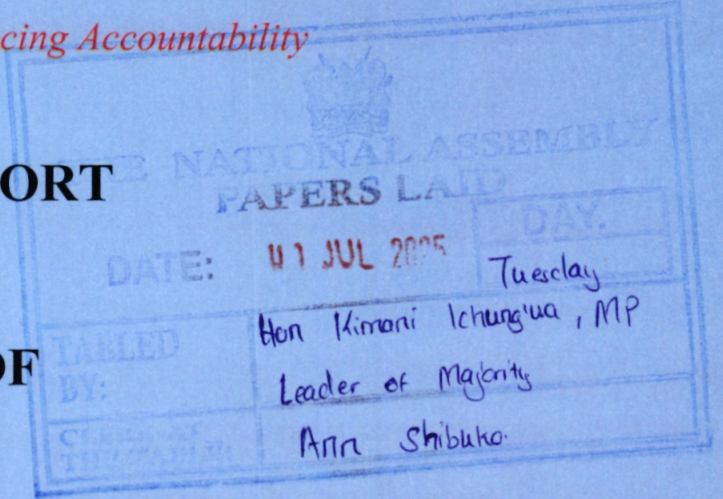 cing Accountability
THE NATIONAL ASSEMBLY
ORT
PAPERS LAID
DATE: 01 JUL 2025 DAY.
Tuesday
TABLED BY: Hon Kimani Ichung'ua, MP
OF
Leader of Majority
CLERK AT THE TABLE: Ann Shibuko.